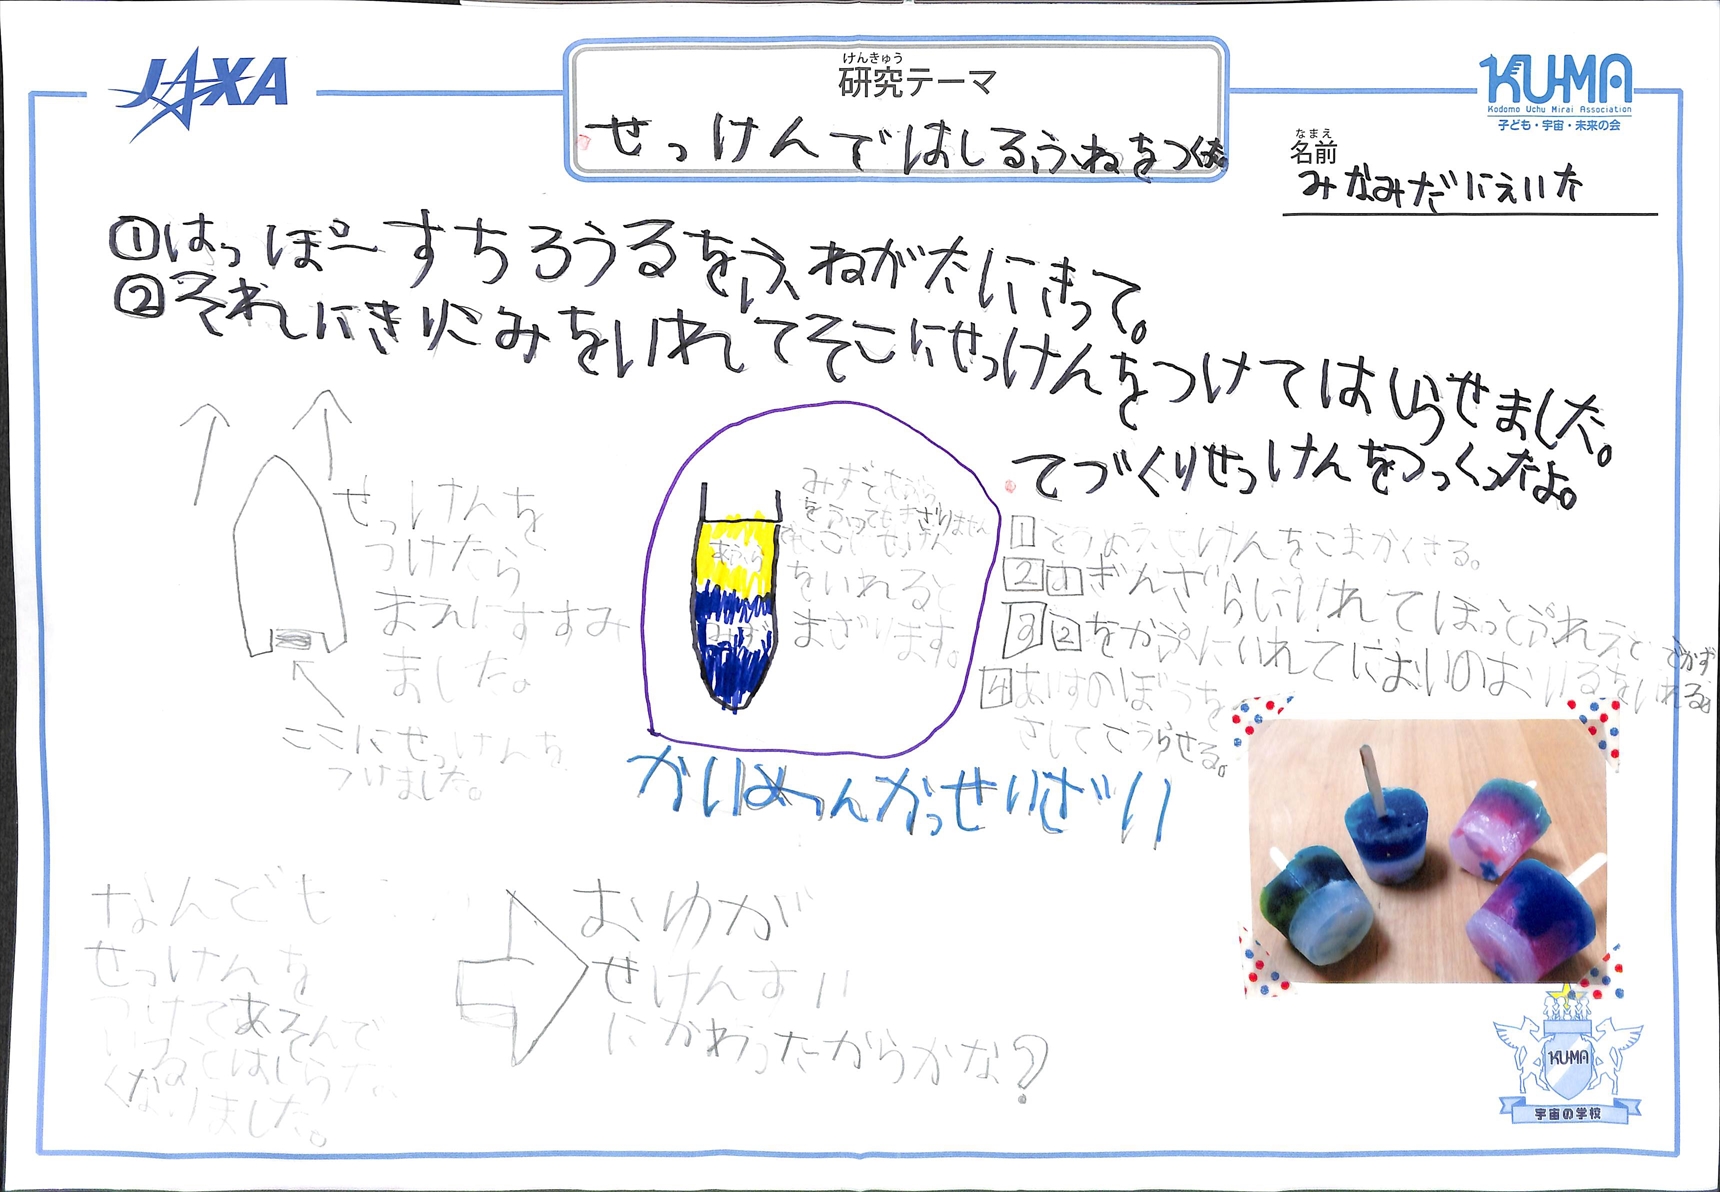 JAXA
けんきゅう
研究テーマ
せっけんではしるふねをつくった。
KU-MA
Kodomo Uchu Mirai Association
子ども・宇宙・未来の会
なまえ
名前
みなみだにえいた
①はっぽーすちろうるをふねがたにきって。
②それにきりこみをいれてそこにせっけんをつけてはしらせました。
せっけんを
つけたら
まえにすすみ
ました。
ここにせっけんを
つけました。
みずとあぶら
をふってもまざりません
でもここにせっけん
をいれると
まざります。
あぶら
みず
かいめんかっせいざい
てづくりせっけんをつっくったよ。
1 とうめいせっけんをこまかくきる。
2 1をぎんざらにいれてほっとぷれえとでかす
3 2をかぷにいれてにおいのおいるをいれる。
4 あいすのぼうを
さしてこうらせる。
なんども
せっけんを
つけてあそんで
いるとはしらな
くなりました。
おゆが
せけんすい
にかわったからかな?
KUMA
宇宙の学校